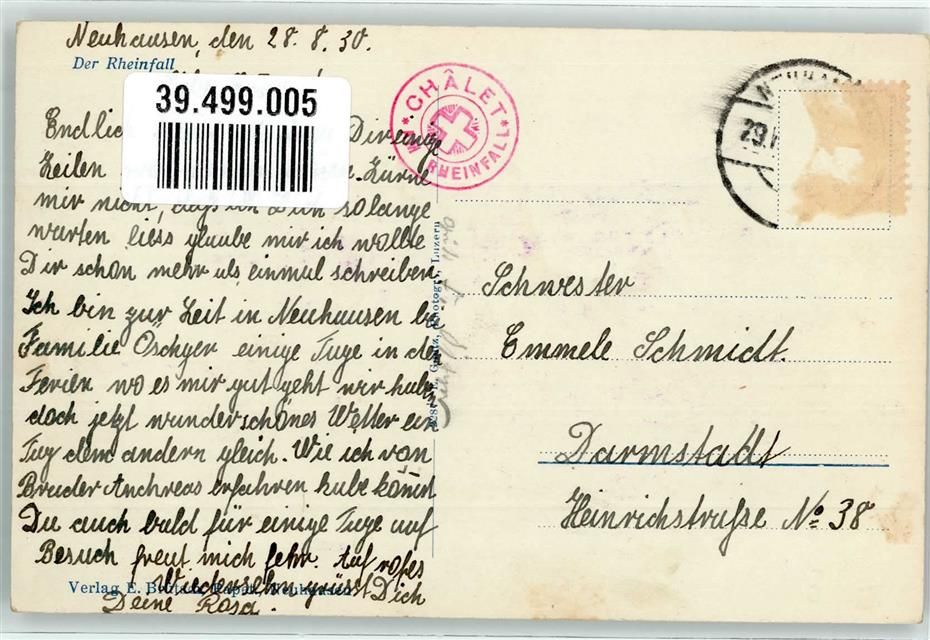 Neuhausen, den 28. 8. 30.
Der Rheinfall
39.499.005
Endlich Dir einige
Zeilen Zürne
mir nicht, daß ich Dich so lange
warten liess glaube mir ich wollte
Dir schon mehr als einmal schreiben.
Ich bin zur Zeit in Neuhausen bei
Familie Öschger einige Tage in den
Ferien wo es mir gut geht wir haben
doch jetzt wunderschönes Wetter ein
Tag dem andern gleich. Wie ich von
Bruder Andreas erfahren habe kommst
Du auch bald für einige Tage auf
Besuch freut mich sehr. Auf
Wiedersehn grüsst Dich
Deine Rosa.
Verlag E. Neuhausen
Photogr., Luzern
CHÂLET
RHEINFALL
29.
Schwester
Emmele Schmidt.
Darmstadt
Heinrichstraße No 38